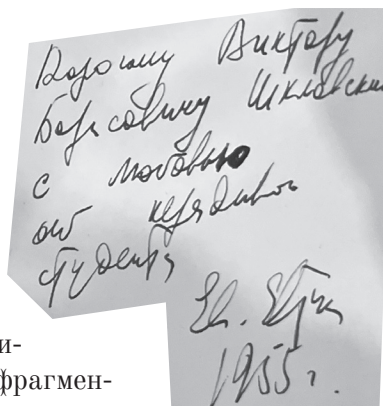 Дорогому Виктору
Борисовичу Шкловски
с любовью
от нерадивого
студента
Ев.
1955 г.
и-
фрагмен-